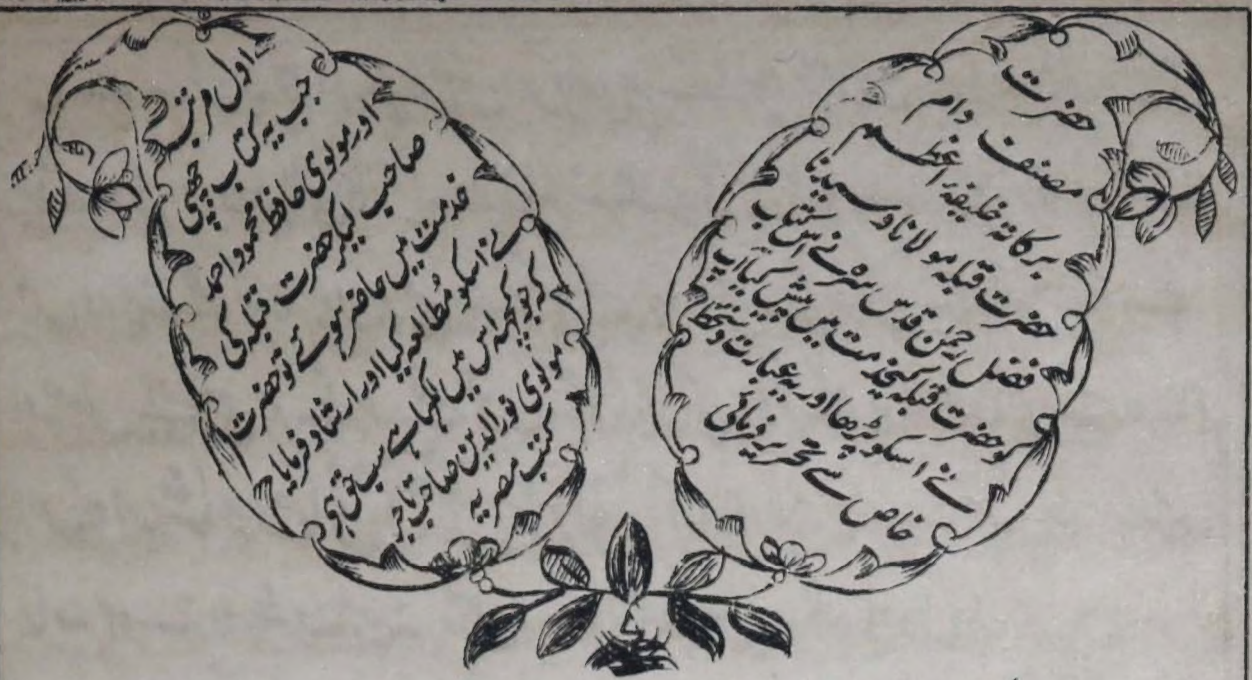 حضرت
مصنف دام
برکاتہ خلیفہ اعظم
حضرت قبلہ مولانا و سیدنا
فضل رحمن قدس سرہ نے اس کتاب
کو حضرت قبلہ کیخدمت میں پیش کیا آپ
نے اسکو پڑھا اور یہ عبارت دستخط
خاص سے تحریر فرمائی
اول مرتبہ
جب یہ کتاب چھپی
اور مولوی حافظ محمود احمد
صاحب لیکر حضرت قبلہ کی
خدمت میں حاضر ہوئے تو حضرت
نے اسکو مطالعہ کیا اور ارشاد فرمایا
کہ جو کچھہ اس میں لکھا ہے سب حق ہی
مولوی نور الدین صاحب تاجر
کتب مصریہ